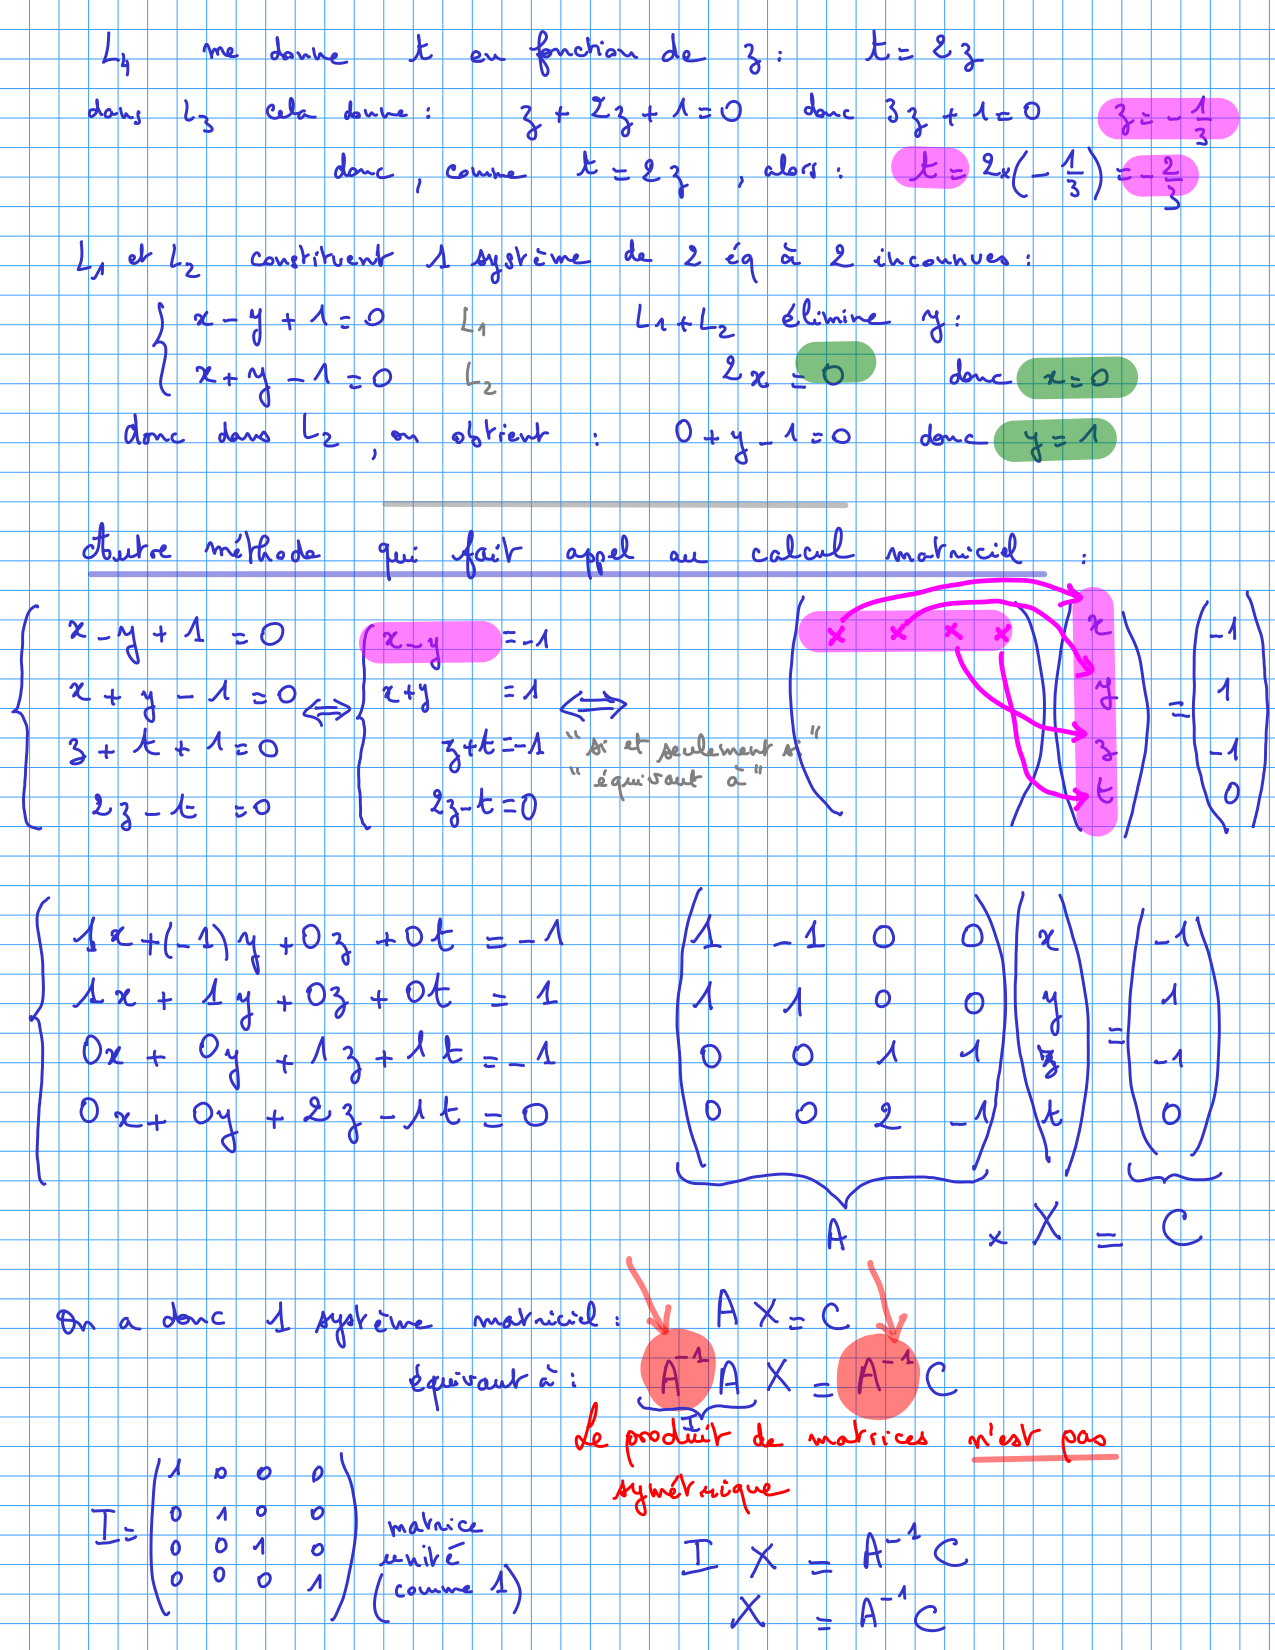 L4 me donne t en fonction de z : t = 2z
dans L3 cela donne : z + 2z + 1 = 0 donc 3z + 1 = 0 z = -1/3
donc, comme t = 2z, alors : t = 2×(-1/3) = -2/3
L1 et L2 constituent 1 système de 2 éq à 2 inconnues :
x - y + 1 = 0 L1 L1 + L2 élimine y :
x + y - 1 = 0 L2 2x = 0 donc x = 0
donc dans L2, on obtient : 0 + y - 1 = 0 donc y = 1
Autre méthode qui fait appel au calcul matriciel :
x - y + 1 = 0 x - y = -1 × × × × x -1
x + y - 1 = 0 ⟺ x + y = 1 ⟺ y = 1
z + t + 1 = 0 z + t = -1 "si et seulement si" z -1
2z - t = 0 2z - t = 0 "équivaut à" t 0
1x + (-1)y + 0z + 0t = -1 1 -1 0 0 x -1
1x + 1y + 0z + 0t = 1 1 1 0 0 y 1
0x + 0y + 1z + 1t = -1 0 0 1 1 z = -1
0x + 0y + 2z - 1t = 0 0 0 2 -1 t 0
A × X = C
On a donc 1 système matriciel : A X = C
équivaut à : A⁻¹ A X = A⁻¹ C
I
Le produit de matrices n'est pas
symétrique
I = 1 0 0 0
0 1 0 0
0 0 1 0
0 0 0 1
matrice
unité
(comme 1)
I X = A⁻¹ C
X = A⁻¹ C